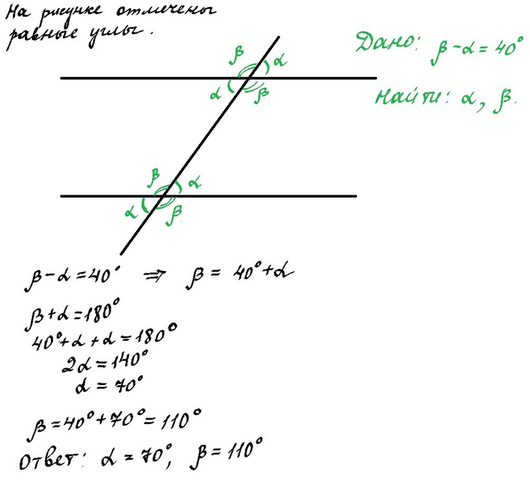 На рисунке отмечены
равные углы.
Дано: β-α=40°
Найти: α, β.
β α
α β
β α
α β
β-α=40° ⇒ β = 40°+α
β+α=180°
40°+α+α=180°
2α=140°
α=70°
β=40°+70°=110°
Ответ: α=70°, β=110°